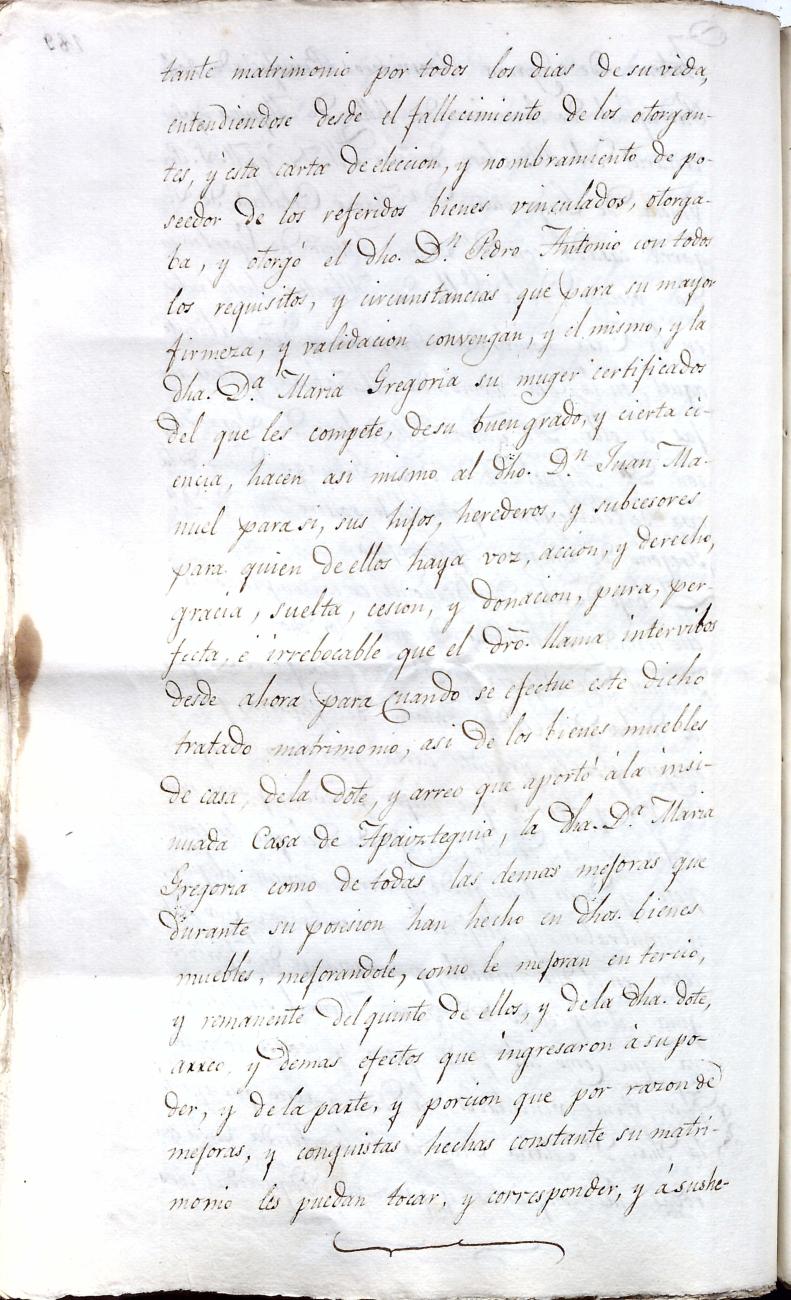 tante matrimonio por todos los dias de su vida,
entendiendose desde el fallecimiento de los otorgan-
tes, y esta carta de eleccion, y nombramiento de po-
seedor de los referidos bienes vinculados, otorga-
ba, y otorgó el dho. D.n Pedro Antonio con todos
los requisitos, y circunstancias que para su mayor
firmeza, y validacion convengan, y el mismo, y la
dha. D.a Maria Gregoria su muger certificados
del que les compete, de su buen grado, y cierta ci-
encia, hacen asi mismo al dho. D.n Juan Ma-
nuel para si, sus hijos, herederos, y subcesores
para quien de ellos haya voz, accion, y derecho,
gracia, suelta, cesion, y donacion, pura, per-
fecta, é irrebocable que el dro. llama intervibos
desde ahora para cuando se efectue este dicho
tratado matrimonio, asi de los bienes muebles
de casa, de la dote, y arreo que aportó á la insi-
nuada Casa de Apaizteguia, la dha. D.a Maria
Gregoria como de todas las demas mejoras que
durante su posesion han hecho en dhos. bienes
muebles, mejorandole, como le mejoran en tercio,
y remanente del quinto de ellos, y de la dha. dote,
arreo, y demas efectos que ingresaron á su po-
der, y de la parte, y porcion que por razon de
mejoras, y conquistas hechas constante su matri-
monio les puedan tocar, y corresponder, y á sus he-